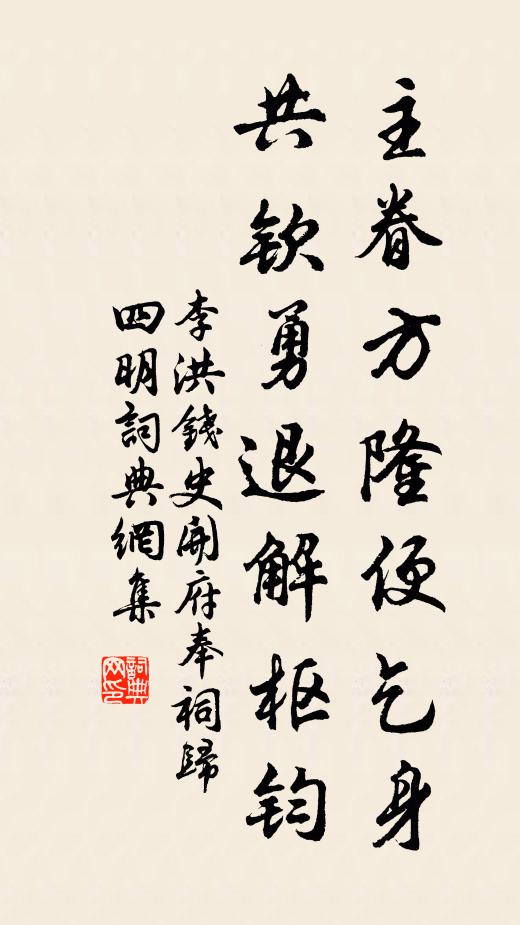 主眷方隆便乞身
共钦勇退解枢钧
李洪錢史開府奉祠歸
四明詞典網集
詞典网印